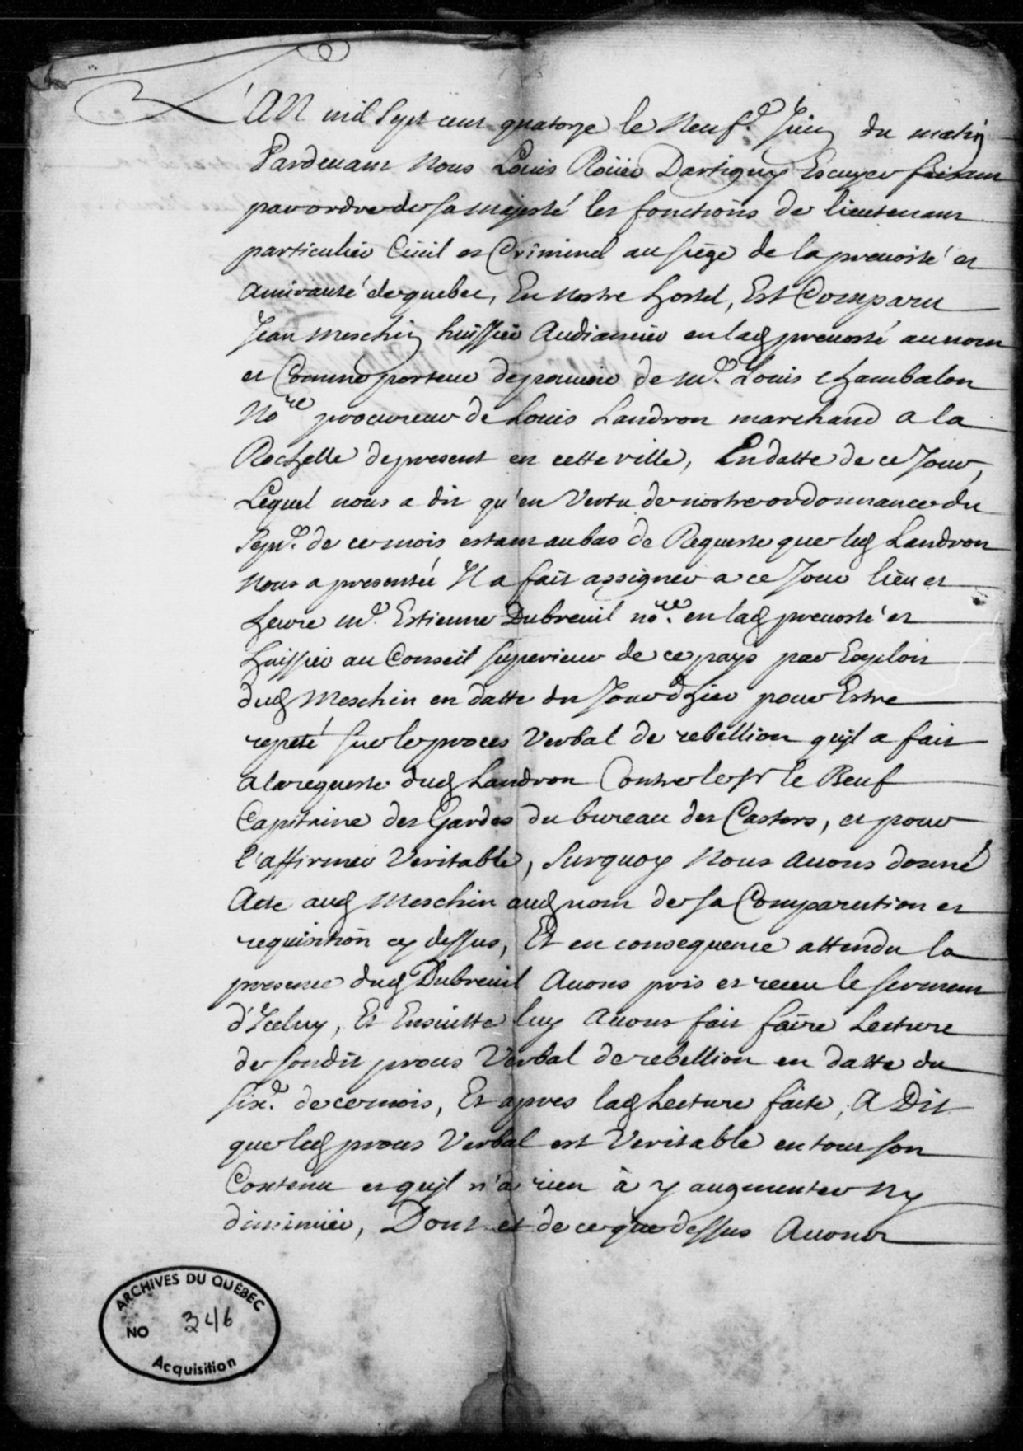 L'AN mil Sept cent quatorze le Neuf.e Juin du matin
Pardevant Nous Louis Roüer Dartigny Escuyer faisant
par ordre de sa Majesté les fonctions de lieutenant
particulier Ciüil et Criminel au siege de la prevosté et
Amirauté de quebec, En nostre hostel, Est Comparu
Jean Meschin huissier Audiancier en lad prevosté au nom
et Comme porteur de pouvoir de m.e Louis Chambalon
No.re procureur de Louis Landron marchand a la
Rochelle de present en cette ville, En datte de ce Jour,
Lequel nous a dit qu'en Vertu de nostre ordonnance du
Sept.e de ce mois estant au bas de Requeste que led Landron
Nous a presenté Il a fait assigner a ce Jour lieu et
heure m.e Estienne Dubreuil no.re en lad prevosté et
huissier au Conseil superieur de ce pays par Exploit
dud Meschin en datte du Jour d'hier pour Estre
repeté sur le proces Verbal de rebellion qu'il a fait
a la requeste dud Landron Contre le Sr le Beuf
Capitaine des Gardes du bureau des Castors, et pour
l'affirmer Veritable, Surquoy Nous Avons donné
Acte aud Meschin aud nom de sa Comparution et
requisition cy dessus, Et en consequence attendu la
presence dud Dubreuil Avons pris et receu le serment
d'Iceluy, Et Ensuitte luy Avons fait faire Lecture
de sondit proces Verbal de rebellion en datte du
six.e de ce mois, Et apres lad Lecture faite, A Dit
que led proces Verbal est Veritable en tout son
Contenu et qu'il n'a rien à y augmenter Ny
diminüer, Dont et de ce que dessus Avons
ARCHIVES DU QUÉBEC
NO 346
Acquisition